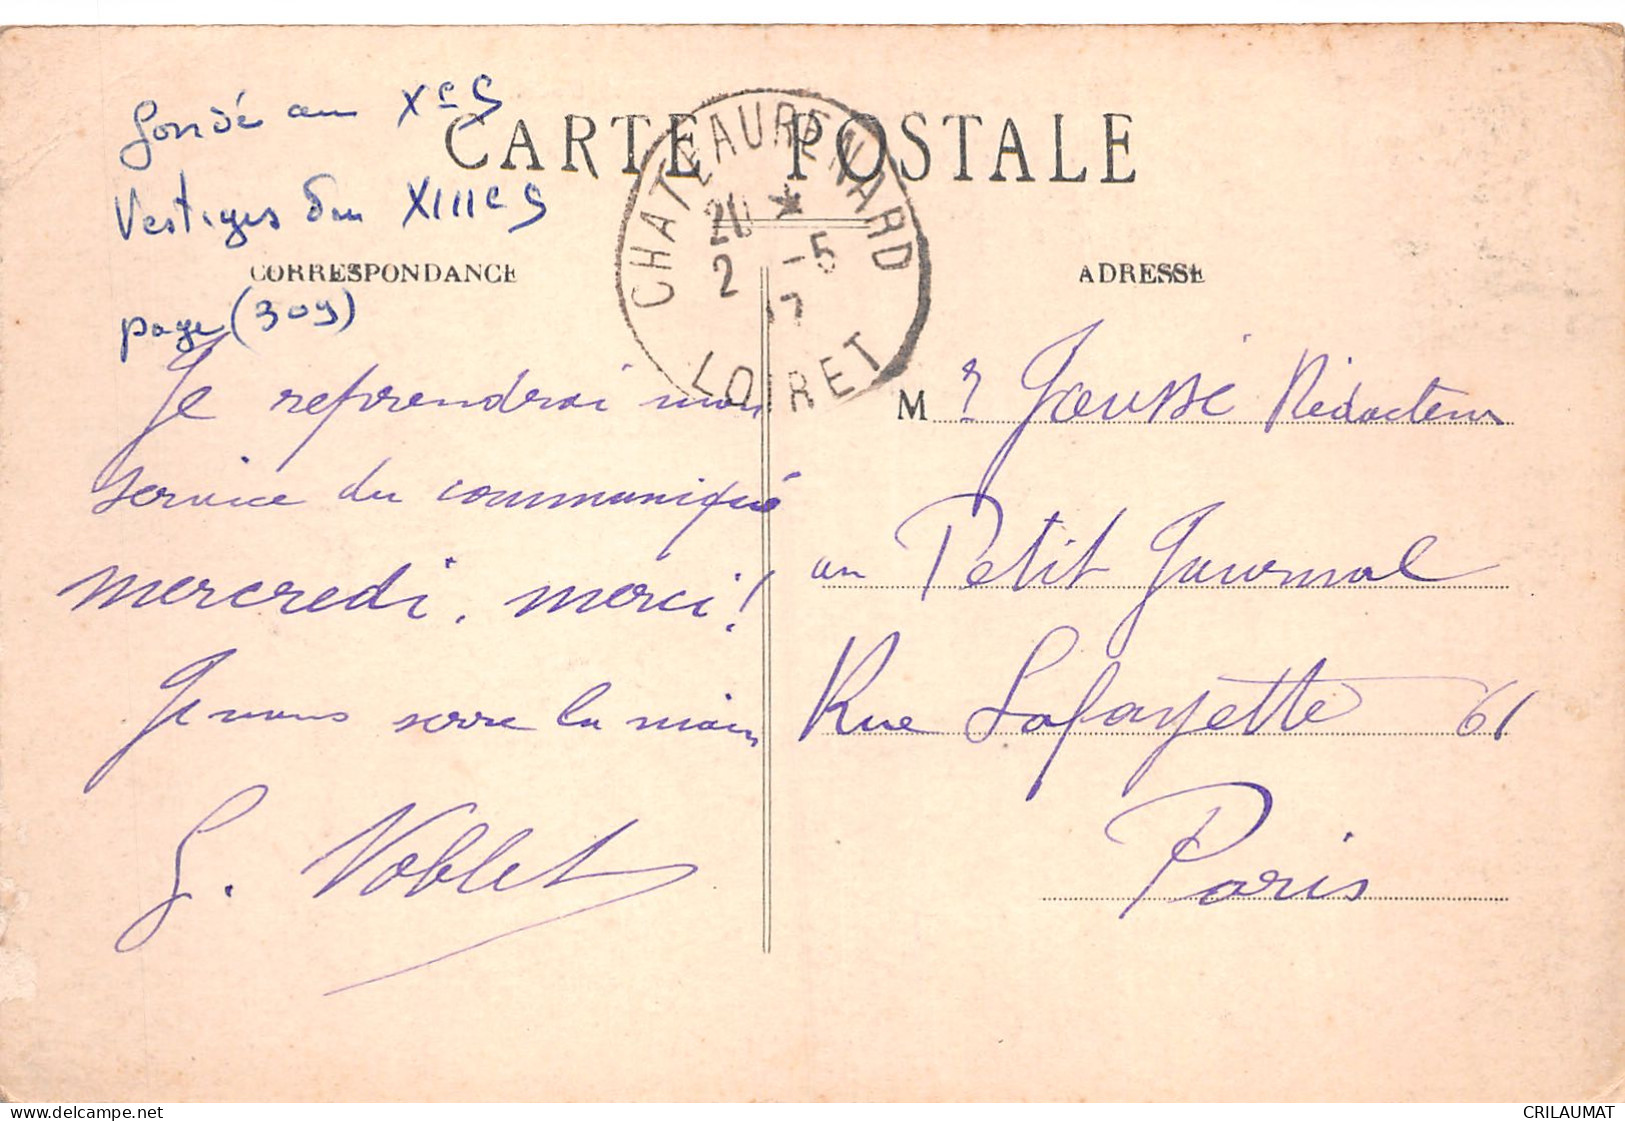 fondé au Xe S
Vestiges du XIIIe S
page (309)
CARTE POSTALE
CHATEAURENARD
2 -5
17
LOIRET
CORRESPONDANCE
Je reprendrai mon
service du communiqué
mercredi, merci!
Je vous serre la main
G. Noblet
ADRESSE
M r Jousse Rédacteur
au Petit Journal
Rue Lafayette 61
Paris
www.delcampe.net
CRILAUMAT